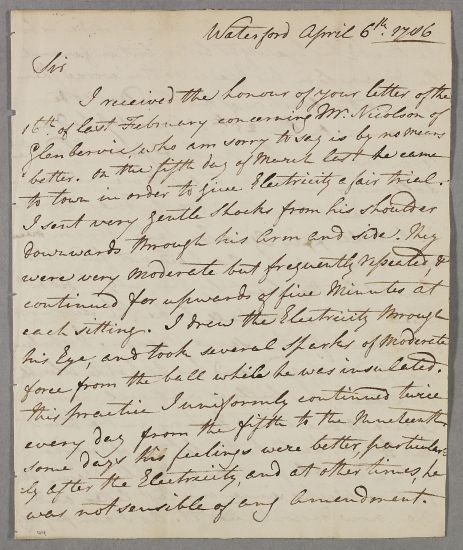 Waterford April 6th. 1786
Sir
I received the honour of your letter of the
16th. of last February concerning Mr. Nicolson of
Glenbervie, who am sorry to say is by no means
better. On the fifth day of March last he came
to town in order to give Electricity a fair trial.
I sent very gentle shocks from his shoulder
downwards through his Arm and side. They
were very moderate but frequently repeated, &
continued for upwards of five Minutes at
each sitting. I drew the Electricity through
his Eye, and took several sparks of moderate
force from the ball while he was insulated.
This practice I uniformly continued twice
every day from the fifth to the Nineteenth
some days his feelings were better, particular-
ly after the Electricity, and at other times, he
was not sensible of any amendment.